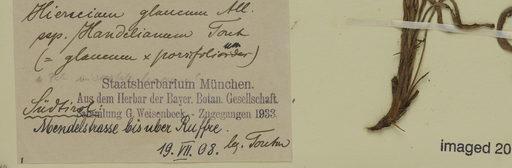 Hieracium glaucum All.
ssp. Handelianum Tout
(= glaucum × porrifolium)
Staatsherbarium München.
Aus dem Herbar der Bayer. Botan. Gesellschaft.
Sammlung G. Weisenbeck - Zugegangen 1933.
Südtirol:
Mendelstrasse bis über Ruffre.
19. VII. 08. leg. Touton
imaged 20